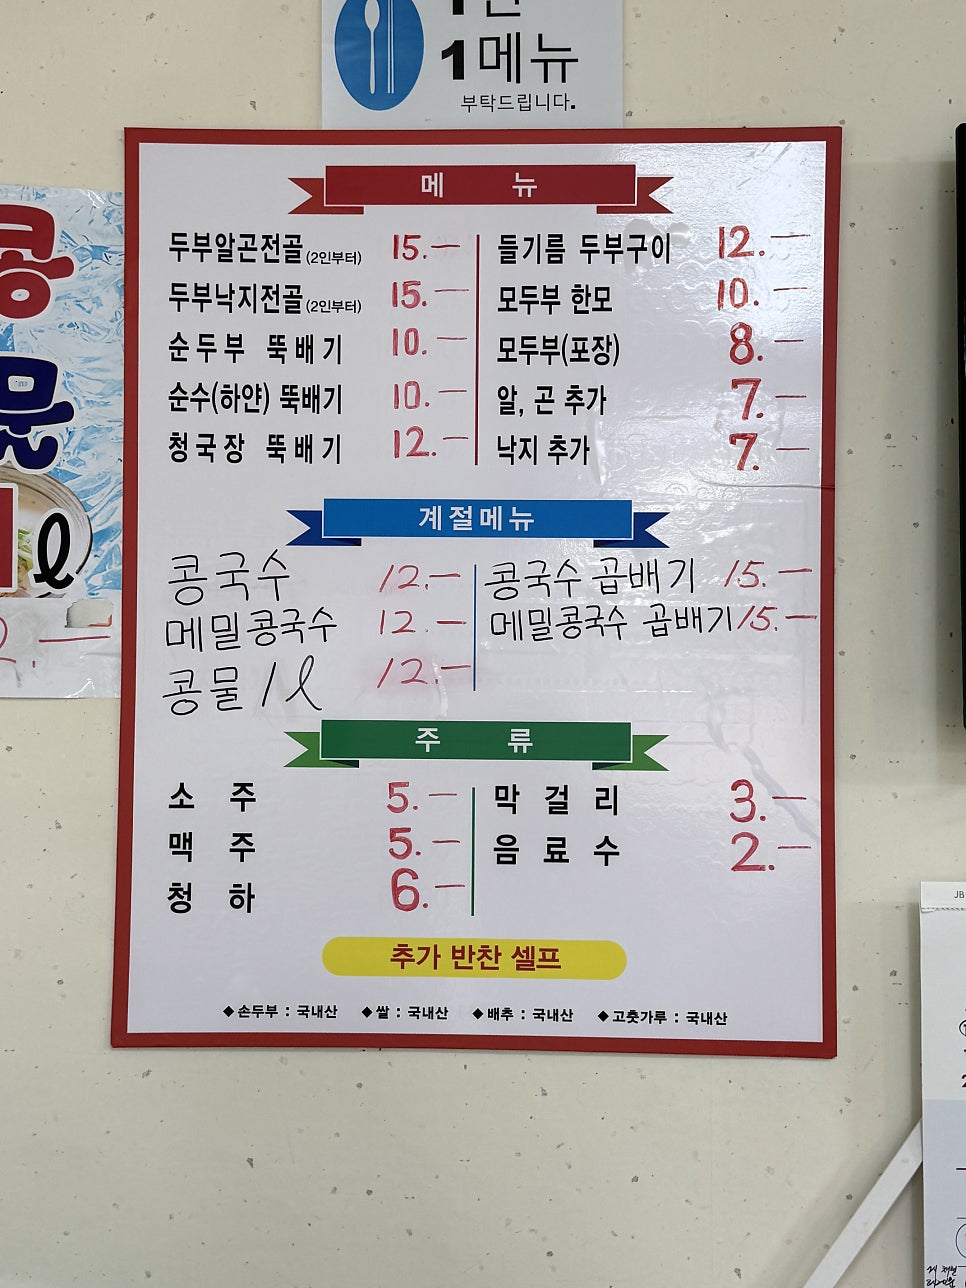 1메뉴
부탁드립니다.
메 뉴
두부알곤전골(2인부터) 15.—
두부낙지전골(2인부터) 15.—
순두부 뚝배기 10.—
순수(하얀) 뚝배기 10.—
청국장 뚝배기 12.—
들기름 두부구이 12.—
모두부 한모 10.—
모두부(포장) 8.—
알, 곤 추가 7.—
낙지 추가 7.—
계절메뉴
콩국수 12.—
메밀콩국수 12.—
콩물 1ℓ 12.—
콩국수 곱배기 15.—
메밀콩국수 곱배기 15.—
주 류
소 주 5.—
맥 주 5.—
청 하 6.—
막 걸 리 3.—
음 료 수 2.—
추가 반찬 셀프
◆손두부 : 국내산 ◆쌀 : 국내산 ◆배추 : 국내산 ◆고춧가루 : 국내산
콩
ℓ
JB